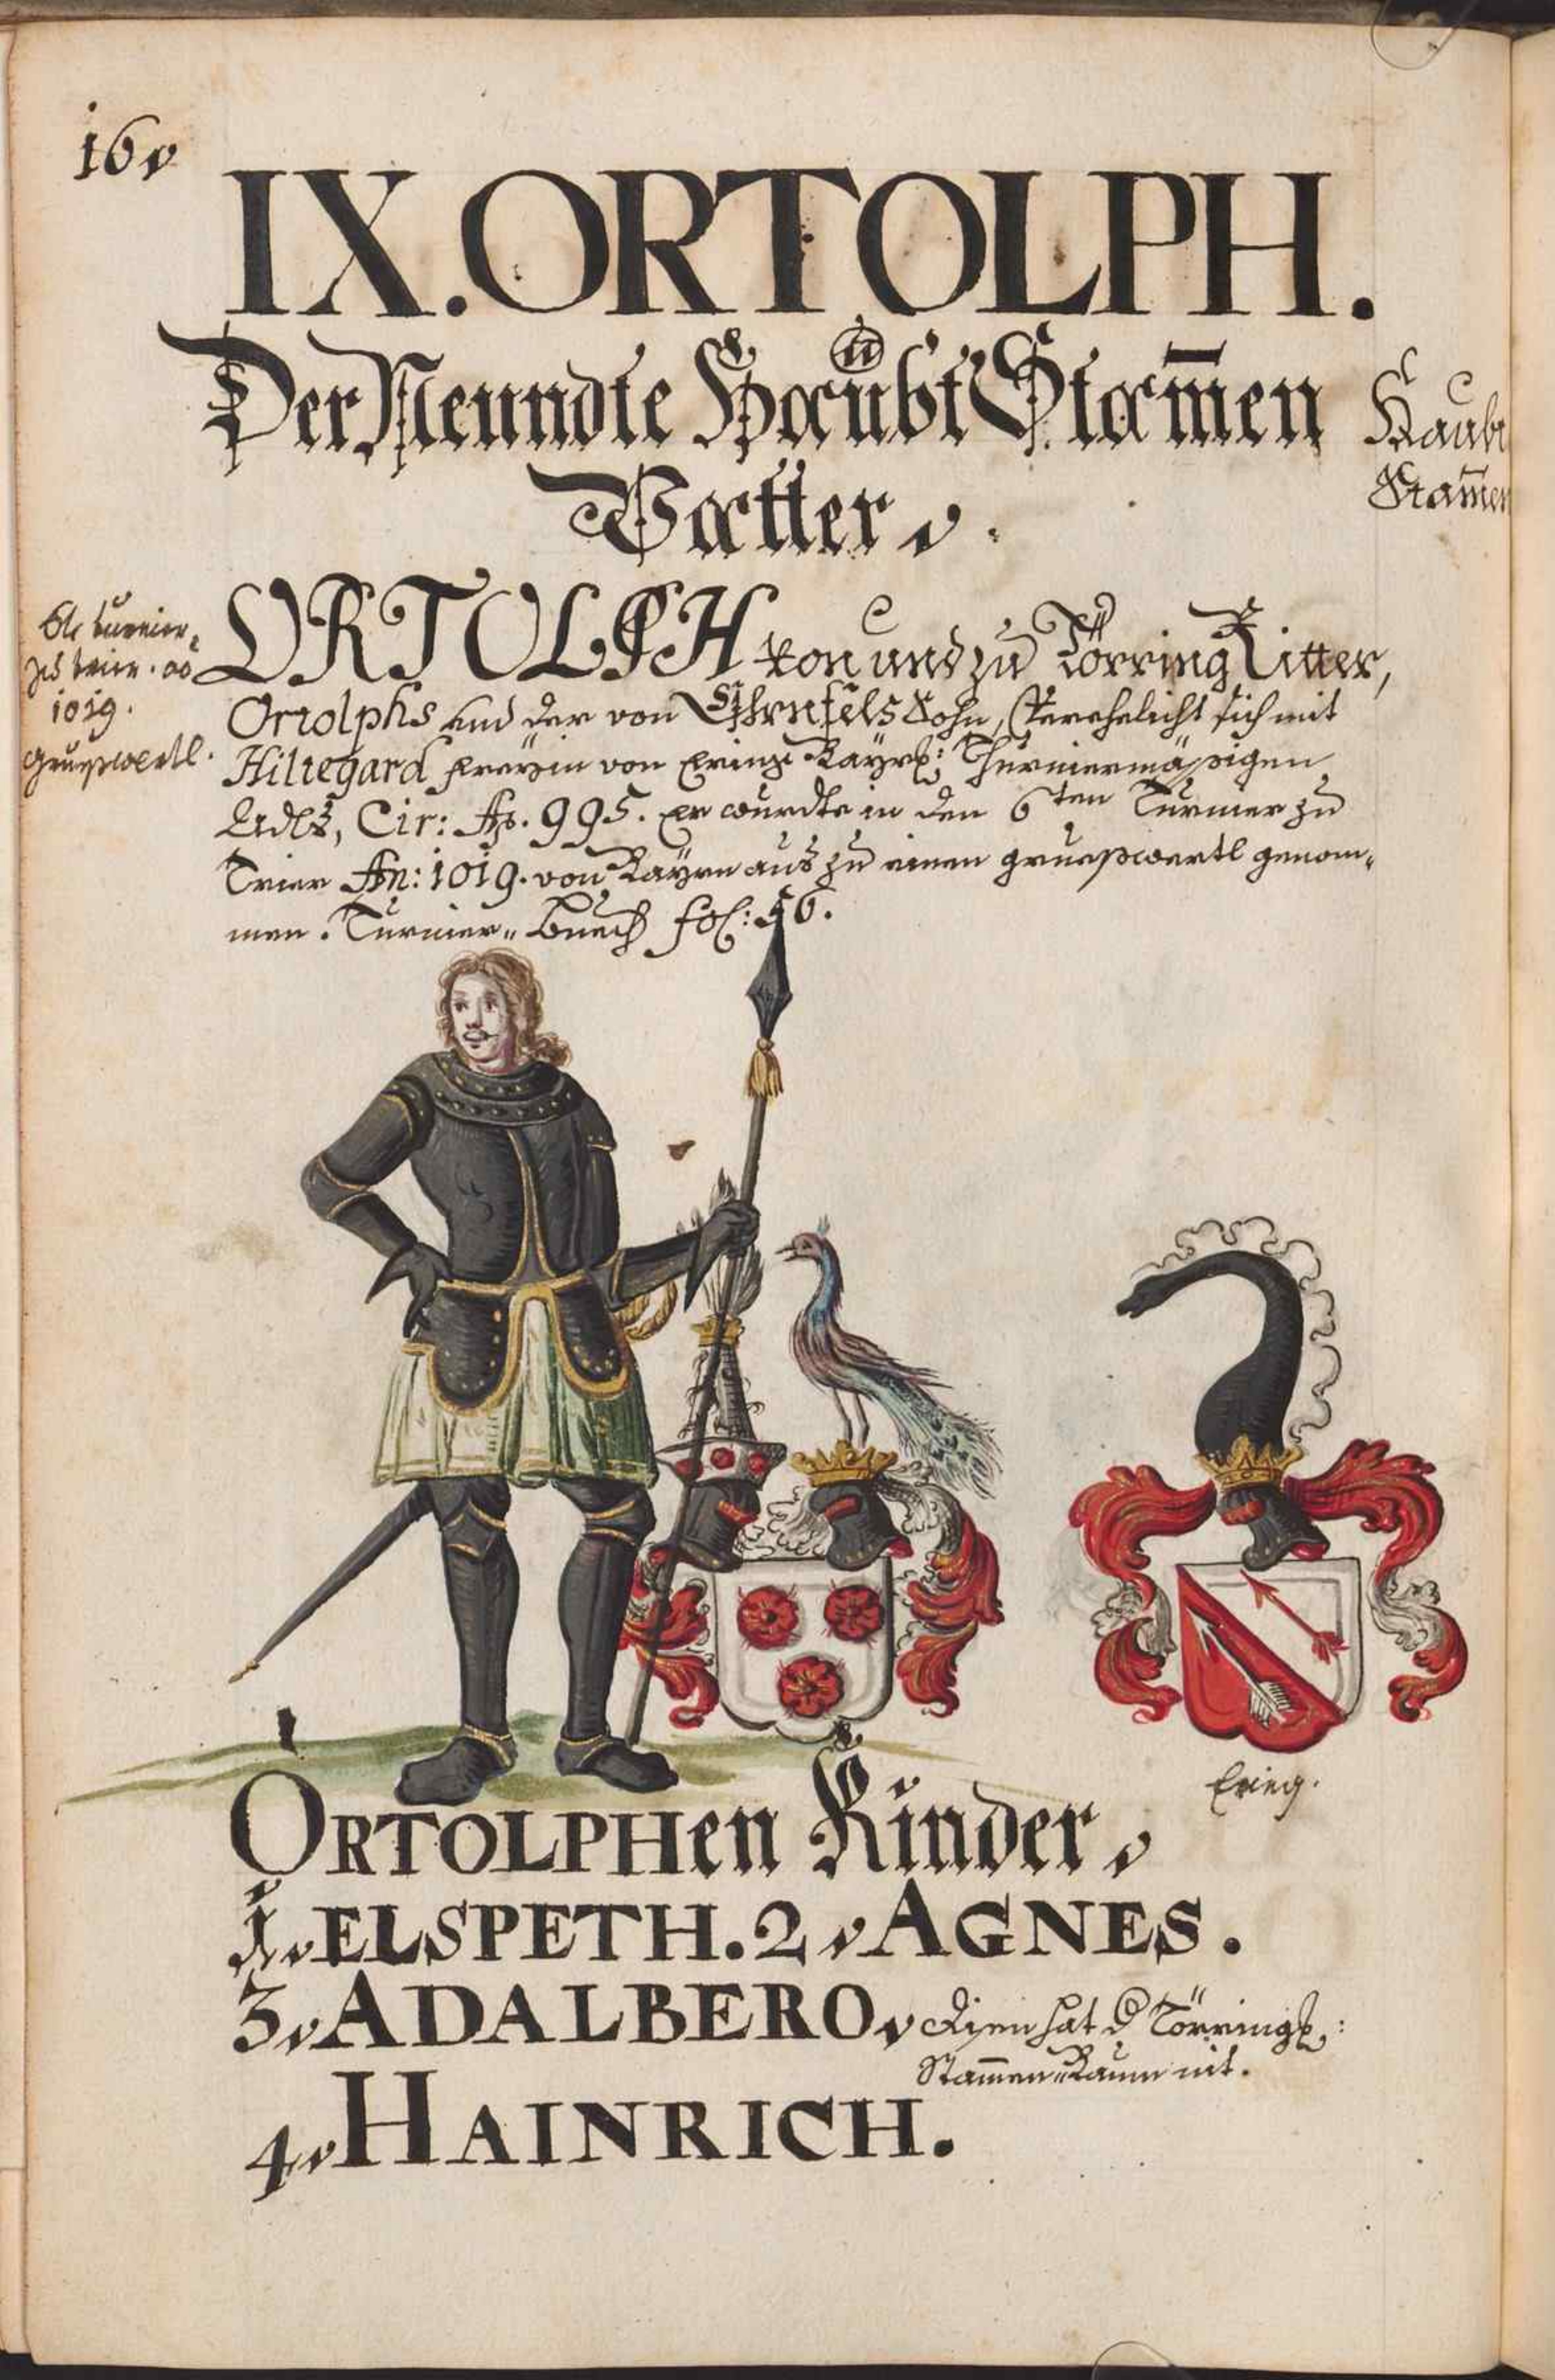 16
IX. ORTOLPH.
Der Neundte Haubt Stam̄en
Vatter.
Haubt
Stam̄en
6te turnier
zu trier. ao
1019.
grueßwertl.
ORTOLPH von und zu Törring Ritter,
Ortolphs und der von Ehrnfels Sohn, verehelicht sich mit
Hiltegard freyin von Ering Bayr: Thurniermäßigen
Adls, Cir: Ao. 995. er wurdte in den 6ten Turnier zu
Trier An: 1019. von Bayrn aus zu einen grueßwertl genom-
men. Turnier-Buech fol: 56.
Ering.
ORTOLPHen Kinder
1. ELSPETH. 2. AGNES.
3. ADALBERO. disen hat d Törring:
Stam̄en-Baum nit.
4. HAINRICH.